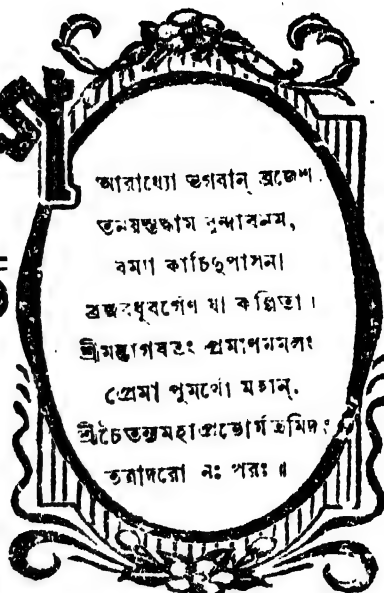 আরাধ্যো ভগবান্ ব্রজেশ-
তনয়স্তদ্ধাম বৃন্দাবনম,
রম্যা কাচিদুপাসনা
ব্রজবধূবর্গেণ যা কল্পিতা।
শ্রীমদ্ভাগবতং প্রমাণমমলং
প্রেমা পুমর্থো মহান্,
শ্রীচৈতন্যমহাপ্রভোর্মতমিদং
তত্রাদরো নঃ পরঃ॥